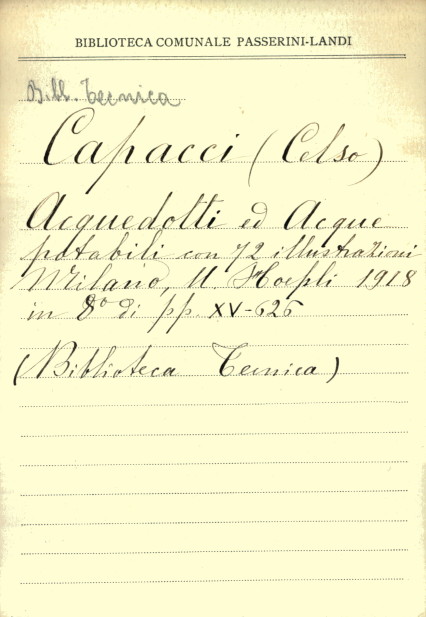 BIBLIOTECA COMUNALE PASSERINI-LANDI
Bibl. Tecnica
Capacci (Celso)
Acquedotti ed Acque
potabili con 72 illustrazioni
Milano, U. Hoepli 1918
in 8° di pp. XV-626
(Biblioteca Tecnica)